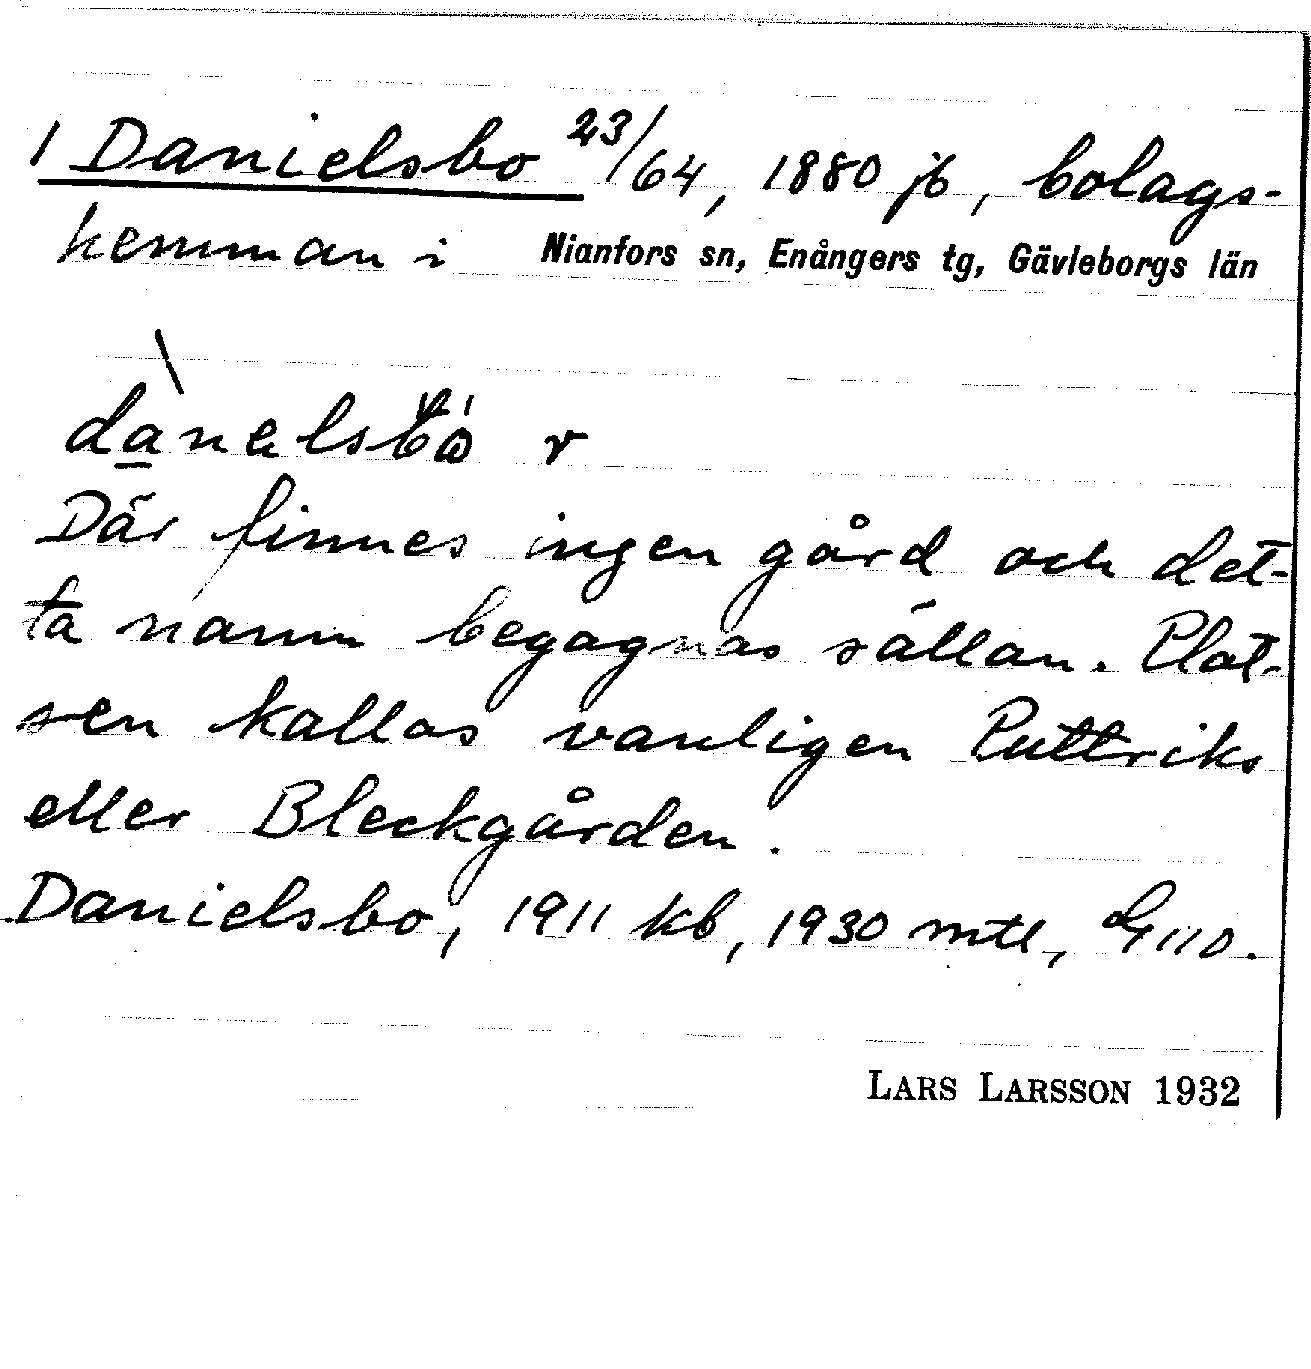 1 Danielsbo 23/64, 1880 jb, bolags-
hemman i Nianfors sn, Enångers tg, Gävleborgs län
Där finnes ingen gård och det-
ta namn begagnas sällan. Plat-
sen kallas vanligen Puttriks
eller Bleckgården.
Danielsbo, 1911 kb, 1930 mtl,
LARS LARSSON 1932